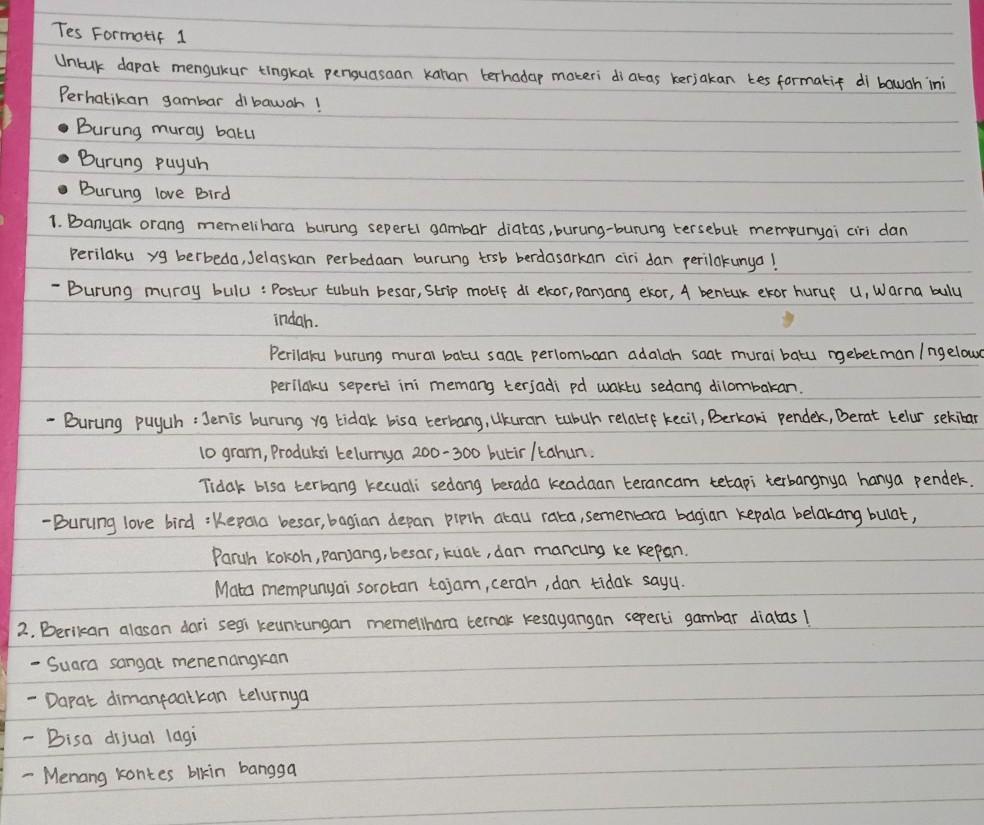 Tes Formatif 1
Untuk dapat mengukur tingkat penguasaan kalian terhadap materi di atas kerjakan tes formatif di bawah ini
Perhatikan gambar dibawah !
• Burung muray batu
• Burung puyuh
• Burung love Bird
1. Banyak orang memelihara burung seperti gambar diatas, burung-burung tersebut mempunyai ciri dan
Perilaku yg berbeda, Jelaskan perbedaan burung trsb berdasarkan ciri dan perilakunya !
- Burung muray bulu : Postur tubuh besar, Strip motif di ekor, panjang ekor, 4 bentuk ekor huruf U, Warna bulu
indah.
Perilaku burung murai batu saat perlombaan adalah saat murai batu ngebetman / ngelowo
perilaku seperti ini memang terjadi pd waktu sedang dilombakan.
- Burung puyuh : Jenis burung yg tidak bisa terbang, Ukuran tubuh relatif kecil, Berkaki pendek, Berat telur sekitar
10 gram, Produksi telurnya 200-300 butir / tahun.
Tidak bisa terbang kecuali sedang berada keadaan terancam tetapi terbangnya hanya pendek.
- Burung love bird : Kepala besar, bagian depan pipih atau rata, sementara bagian kepala belakang bulat,
Paruh kokoh, panjang, besar, kuat, dan mancung ke kepan.
Mata mempunyai sorotan tajam, cerah, dan tidak sayu.
2. Berikan alasan dari segi keuntungan memelihara ternak kesayangan seperti gambar diatas !
- Suara sangat menenangkan
- Dapat dimanfaatkan telurnya
- Bisa dijual lagi
- Menang kontes bikin bangga